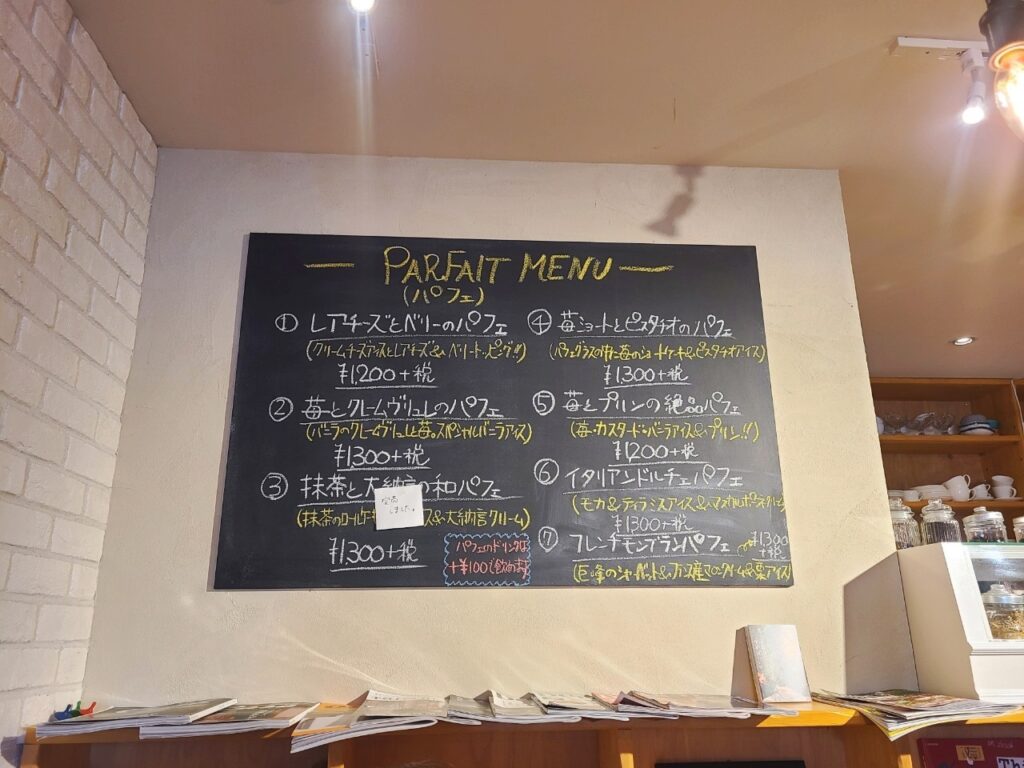 PARFAIT MENU
(パフェ)
① レアチーズとベリーのパフェ
(クリームチーズアイスとレアチーズ&ベリートッピング!!)
¥1,200+税
② 苺とクレームヴリュレのパフェ
(バニラのクレームヴリュレと苺。スペシャルバニラアイス)
¥1,300+税
③ 抹茶と大納言の和パフェ
完売しました。
(抹茶のロールケ ス&大納言クリーム)
¥1,300+税
パフェ+ドリンクは
+¥100で飲めます
④ 苺ショートとピスタチオのパフェ
(パフェグラスの中に苺のショートケーキ&ピスタチオアイス)
¥1,300+税
⑤ 苺とプリンの絶品パフェ
(苺・カスタード・バニラアイス&プリン!!)
¥1,200+税
⑥ イタリアンドルチェパフェ
(モカ&ティラミスアイス&マスカルポーネクリーム
¥1,300+税
⑦ フレンチモンブランパフェ
¥1,300+税
(巨峰のシャーベット&フランス産マロンクリーム&栗アイス)